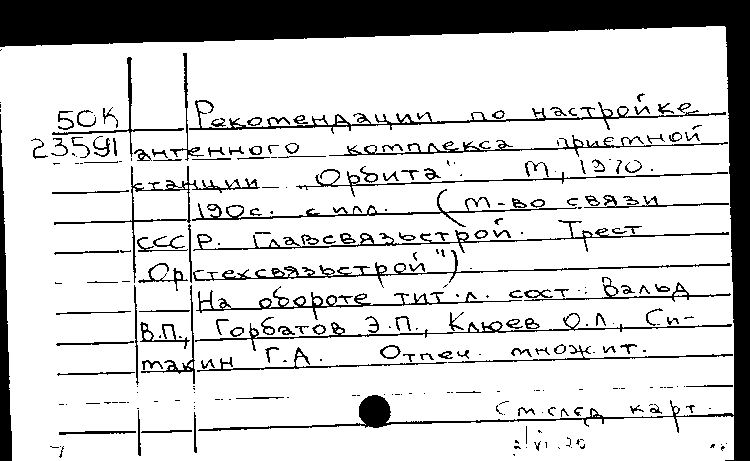 50К Рекомендации по настройке
23591 антенного комплекса приемной
станции „Орбита". М., 1970.
190с. с илл. (М-во связи
СССР. Главсвязьстрой. Трест
„Орстехсвязьстрой").
На обороте тит.л. сост.: Вальд
В.П., Горбатов Э.П., Клюев О.Л., Си-
такин Г.А. Отпеч. множит.
См.след карт.